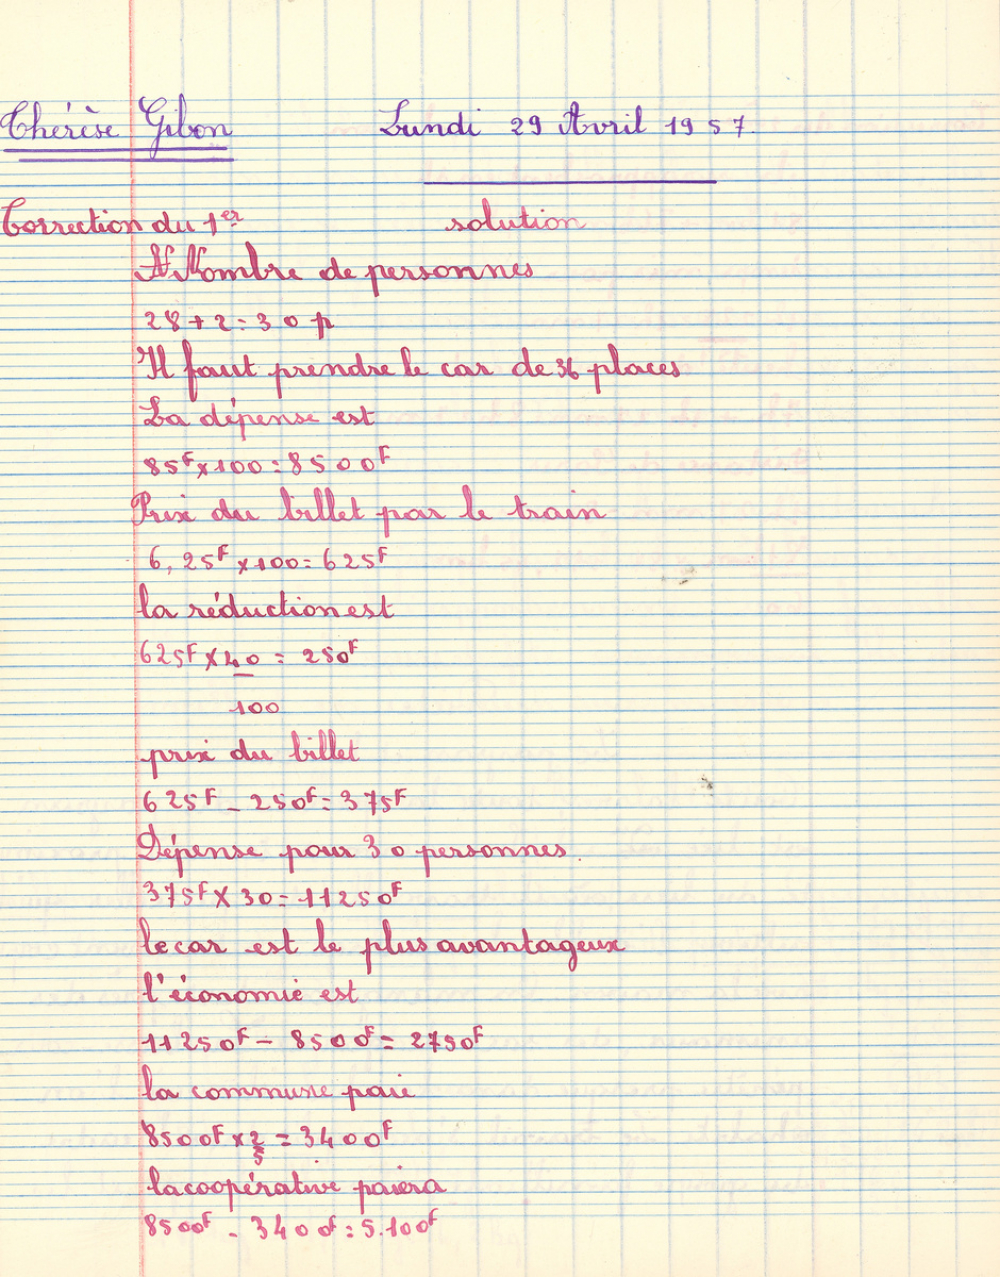 Thérèse Gibon Lundi 29 Avril 1957.
Correction du 1er solution
Nombre de personnes
28 + 2 = 30 p
Il faut prendre le car de 36 places
La dépense est
85F x 100 = 8500F
Prix du billet par le train
6,25F x 100 = 625F
la réduction est
625F x 40 = 250F
100
prix du billet
625F - 250F = 375F
Dépense pour 30 personnes.
375F x 30 = 11250F
le car est le plus avantageux
l'économie est
11250F - 8500F = 2750F
la commune paie
8500F x 2/5 = 3400F
la coopérative paiera
8500F - 3400F = 5.100F